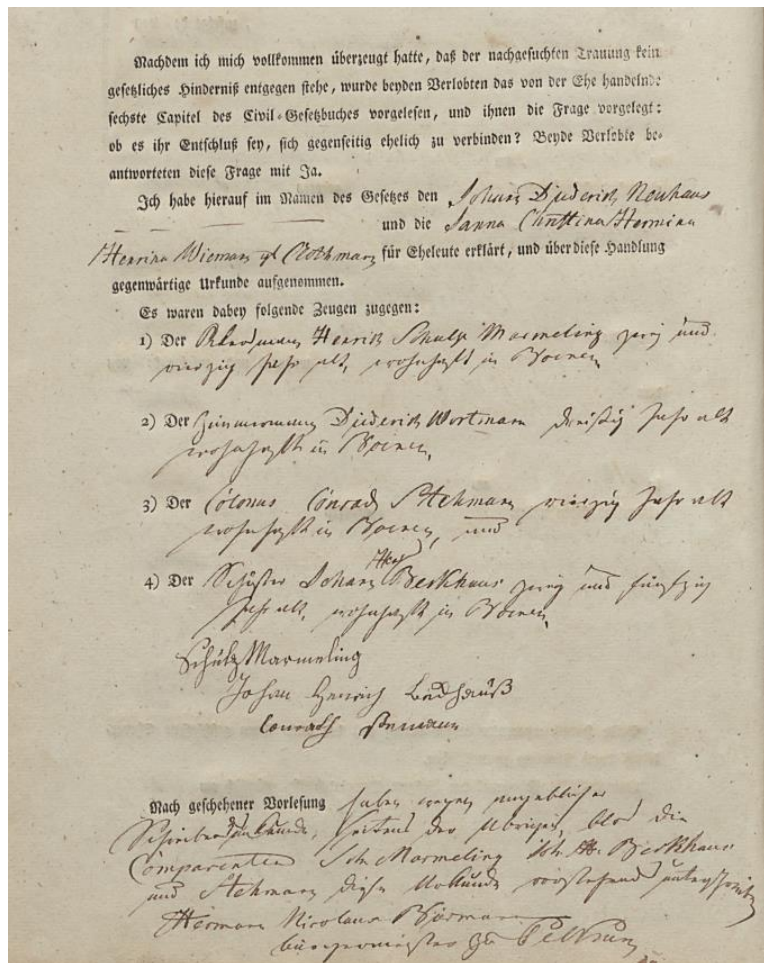 Nachdem ich mich vollkommen überzeugt hatte, daß der nachgesuchten Trauung kein
gesetzliches Hinderniß entgegen stehe, wurde beyden Verlobten das von der Ehe handelnde
sechste Capitel des Civil-Gesetzbuches vorgelesen, und ihnen die Frage vorgelegt:
ob es ihr Entschluß sey, sich gegenseitig ehelich zu verbinden? Beyde Verlobte be-
antworteten diese Frage mit Ja.
Ich habe hierauf im Namen des Gesetzes den Johann Diederich Neuhaus
und die Janna Christina Hermina
Henrina Wiemann für Eheleute erklärt, und über diese Handlung
gegenwärtige Urkunde aufgenommen.
Es waren dabey folgende Zeugen zugegen:
1) Der Henrich Schulze Marmeling zwey und
vierzig Jahr alt, wohnhaft in Boenen
2) Der Zimmermann Diederich Wortmann dreißig Jahr alt
wohnhaft in Boenen,
3) Der Colonus Conrad Stehmann vierzig Jahr alt
wohnhaft in Boenen, und
4) Der Schuster Johann Beckhaus zwey und funfzig
Jahr alt, wohnhaft in Boenen,
Schulz Marmeling
Johan Henrich Beckhauß
Conrath Stemann
Nach geschehener Vorlesung haben wegen angeblicher
Schreibensunkunde, seitens der Übrigen, blos die
Comparenten Sch. Marmeling Joh. H. Beckhaus
und Stehmann diese Urkunde vorstehend unterschrieben
Hermann Nicolaus
bürgermeister zu Pelkum